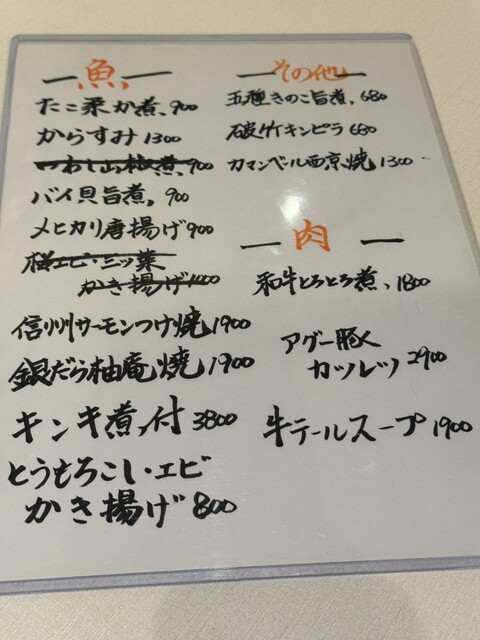 魚
たこ柔か煮、900
からすみ 1300
いわし山椒煮、900
バイ貝旨煮、900
メヒカリ唐揚げ 900
桜エビ・三ツ葉
かき揚げ 1000
信州サーモンつけ焼 1900
銀だら柚庵焼 1900
キンキ煮付 3800
とうもろこし・エビ
かき揚げ 800
その他
五種きのこ旨煮、680
破竹キンピラ 680
カマンベール西京焼 1300
肉
和牛とろとろ煮、1800
アグー豚
カツレツ 2900
牛テールスープ 1900